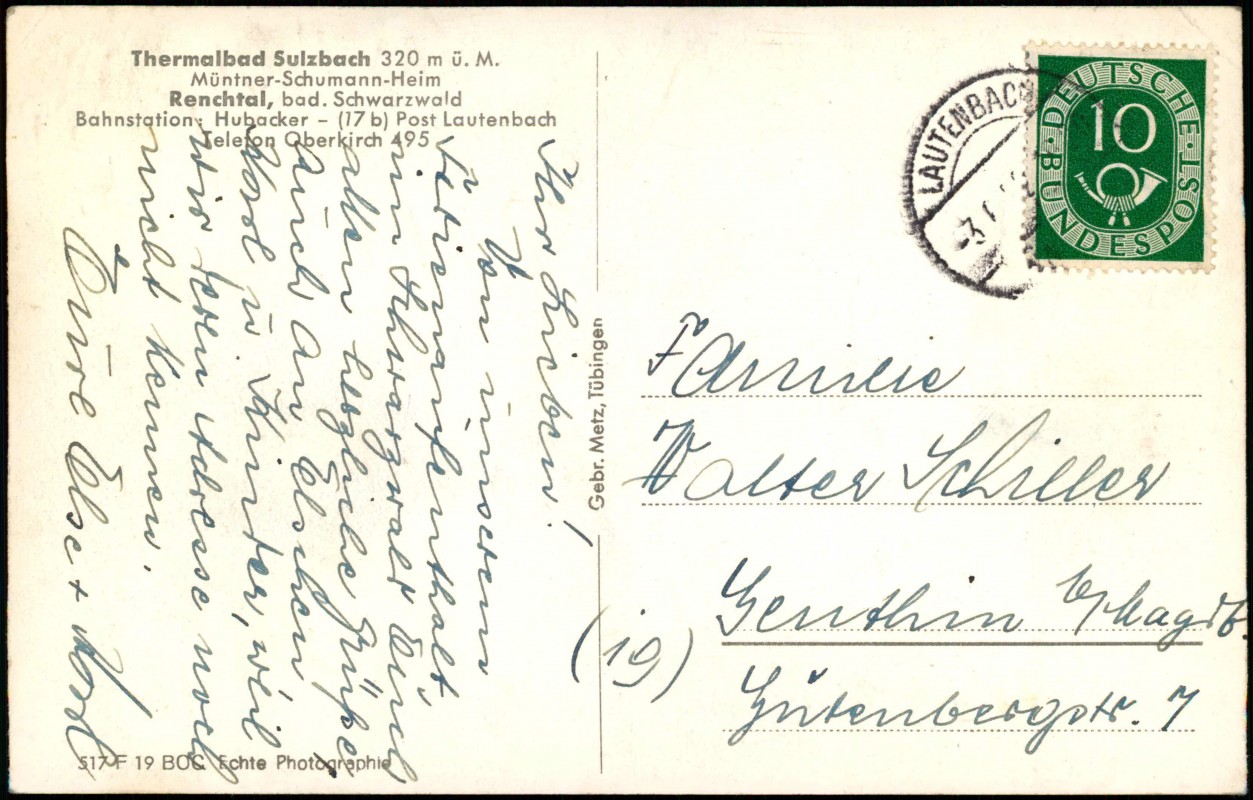 Thermalbad Sulzbach 320 m ü. M.
Müntner-Schumann-Heim
Renchtal, bad. Schwarzwald
Bahnstation: Hubacker – (17 b) Post Lautenbach
Telefon Oberkirch 495
Ihr Lieben!
Von unserem
Ferienaufenthalt
im Schwarzwald Euch
allen herzliche Grüße
auch an Elschen
Karl u. Kinder, weil
wir deren Adresse noch
nicht kennen.
Eure Else + Karl
517 F 19 BOG Echte Photographie
Gebr. Metz, Tübingen
LAUTENBACH
DEUTSCHE
10
BUNDESPOST
Familie
Walter Schiller
(19) Genthin b/Magdb.
Gutenbergstr. 7